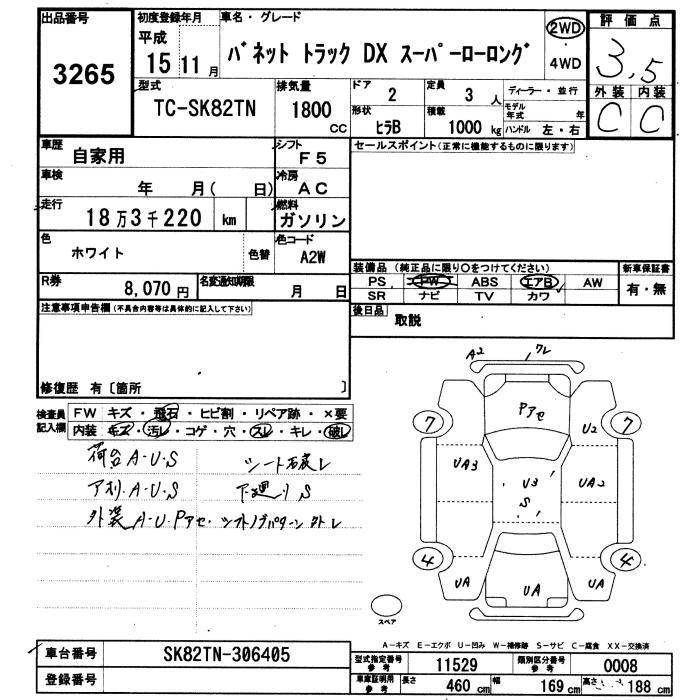 出品番号
3265
初度登録年月
平成
15 11 月
車名・グレード
バネット トラック DX スーパーローロング
2WD
4WD
評価点
3,5
外装 内装
C C
型式
TC-SK82TN
排気量
1800
CC
ドア 2
定員 3 人
形状
ヒラB
積載 1000 kg
ディーラー・並行
モデル年式 年
ハンドル 左・右
車歴
自家用
シフト
F5
車検
年 月( 日)
冷房
AC
走行
18万3千220 km
燃料
ガソリン
色
ホワイト
色替
色コード
A2W
R券
8,070 円
名変通知期限
月 日
セールスポイント(正常に機能するものに限ります)
装備品 (純正品に限り○をつけてください)
PS PW ABS エアB AW
SR ナビ TV カワ
新車保証書
有・無
後日品
取説
注意事項申告欄(不具合内容等は具体的に記入して下さい)
修復歴 有〔箇所 〕
検査員
記入欄
FW キズ・飛石・ヒビ割・リペア跡・×要
内装 キズ・汚レ・コゲ・穴・スレ・キレ・破レ
荷台 A-U-S
シート破レ
アオリ A-U-S
下廻り S
外装 A-U-Pアセ・シフトノブパターン外レ
A2
クレ
7
Pアセ
7
U2
UA3
U3
S
UA2
4
4
UA
UA
UA
スペア
A-キズ E-エクボ U-凹み W-補修跡 S-サビ C-腐食 XX-交換済
車台番号
SK82TN-306405
登録番号
型式指定番号
参考
11529
類別区分番号
参考
0008
車庫証明用
参考
長さ 460 cm
幅 169 cm
高さ 188 cm